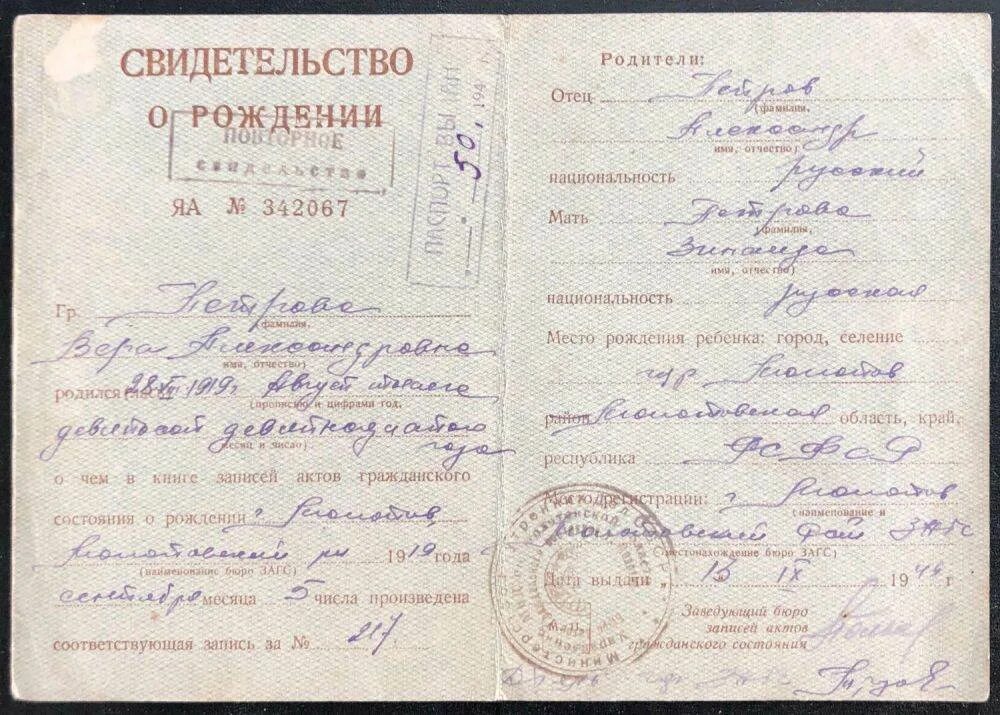 СВИДЕТЕЛЬСТВО
О РОЖДЕНИИ
ПОВТОРНОЕ
свидельство
ЯА № 342067
ПАСПОРТ ВЫДАН
50, 194 г.
Гр. Петрова
(фамилия,
Вера Александровна
имя, отчество)
родился 28 VIII 1919 г. Август тысяча
(прописью и цифрами год,
девятьсот девятнадцатого
месяц и число) года
о чем в книге записей актов гражданского
состояния о рождении г Молотов
Молотовский рн 1919 года
(наименование бюро ЗАГС)
сентября месяца 5 числа произведена
соответствующая запись за № 217
Родители:
Отец Петров
(фамилия,
Александр
имя, отчество)
национальность русский
Мать Петрова
(фамилия,
Зинаида
имя, отчество)
национальность русская
Место рождения ребенка: город, селение
гор Молотов
район Молотовская область, край,
республика РСФСР
Место регистрации: г Молотов
(наименование и
Молотовский Рай ЗАГС
местонахождение бюро ЗАГС)
Дата выдачи 13 IX 1946 г
Заведующий бюро
записей актов
гражданского состояния